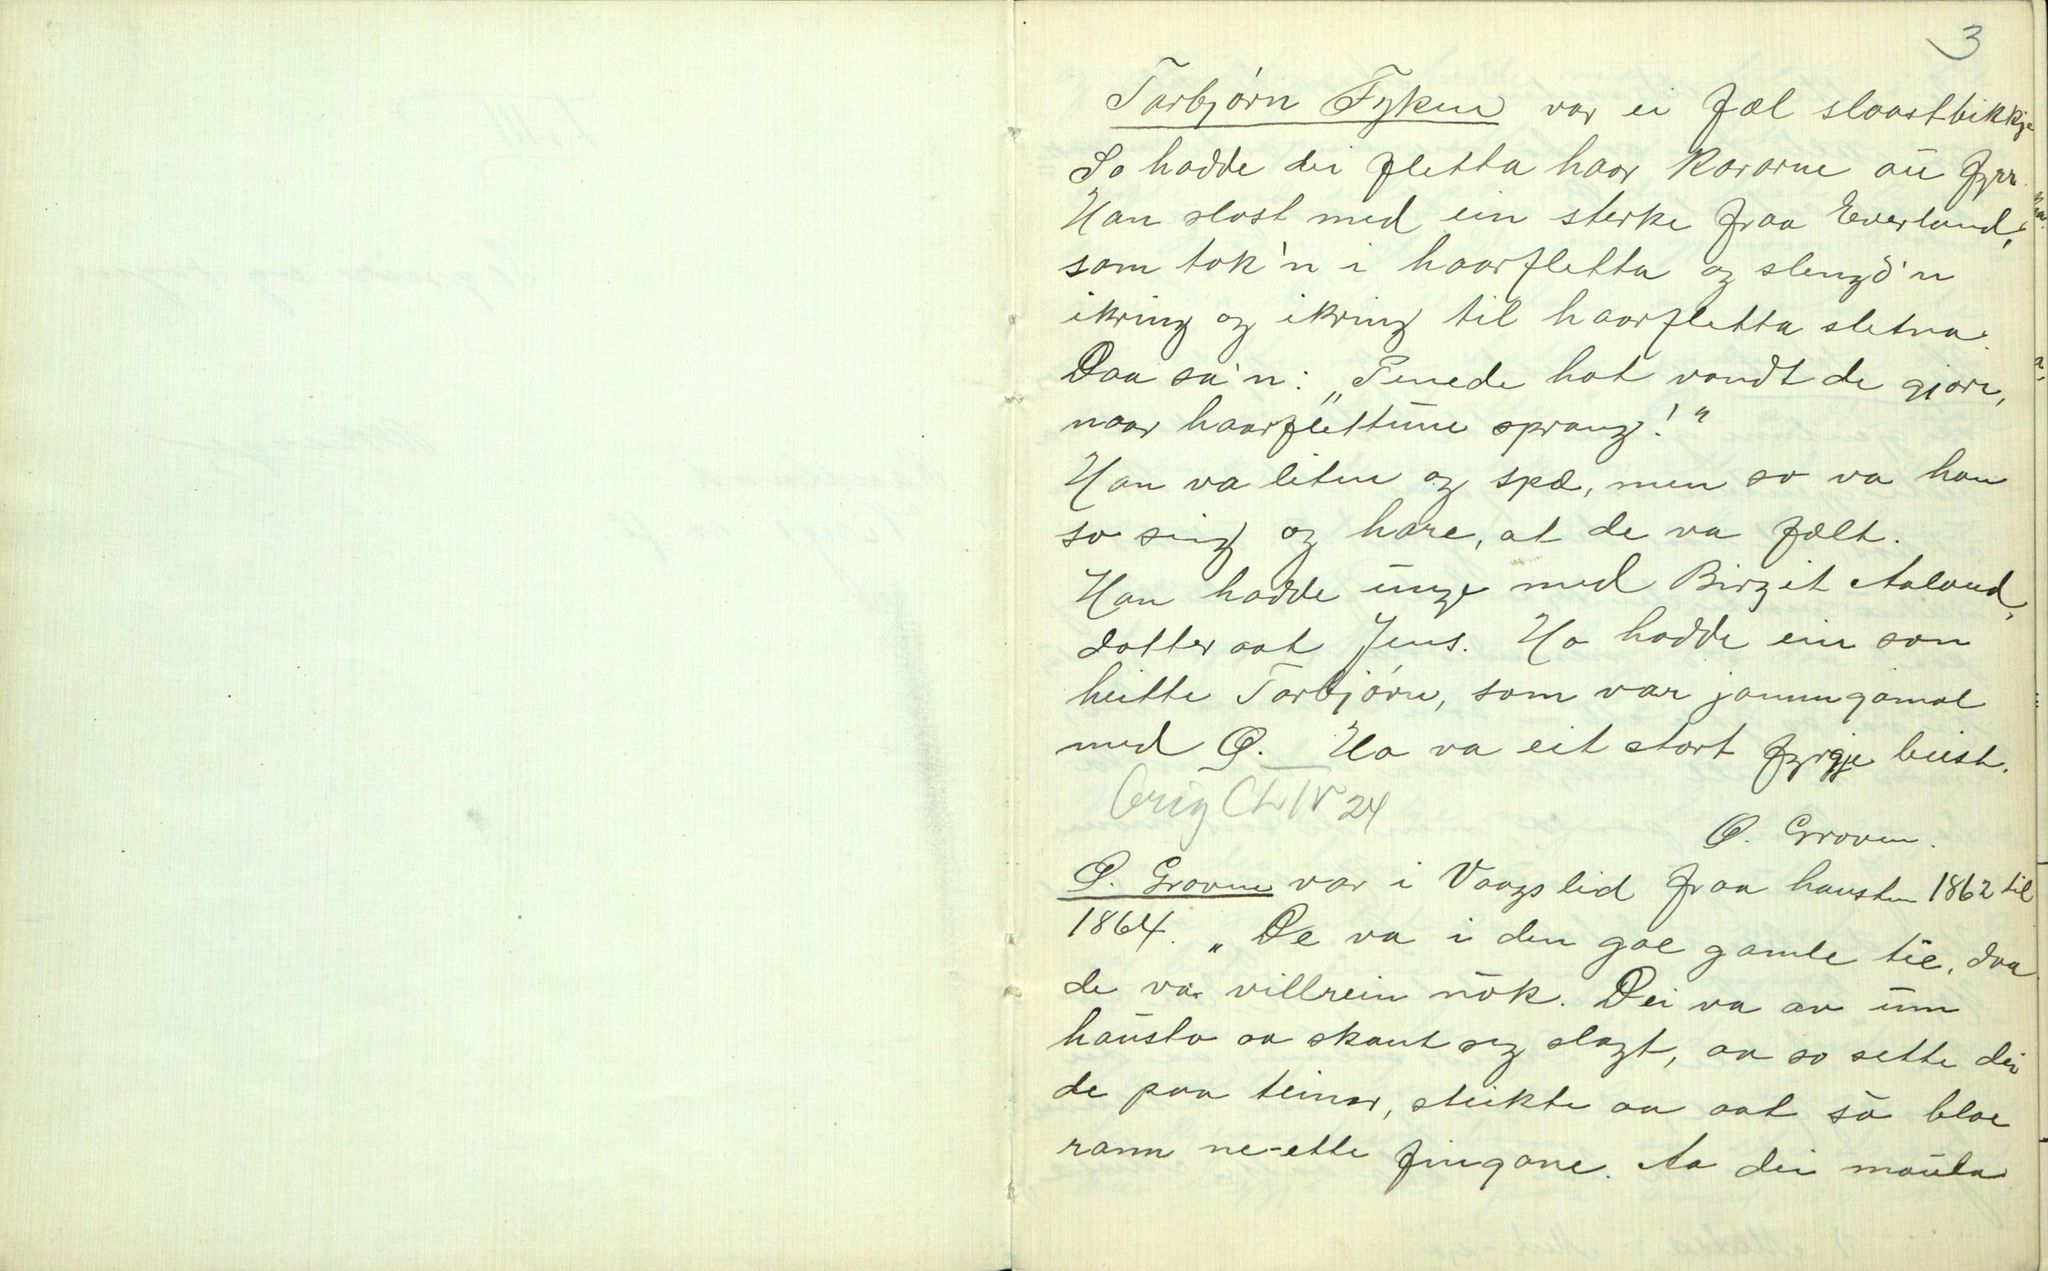 3
Tarbjørn Fykun var ei fæl slaastbikkje
So hadde dei fletta haar kararne au fyrr.
Han slost med ein sterke fraa Everland,
som tok'n i haarfletta og slengd'n
ikring og ikring til haarfletta sletna.
Daa sa'n: „ hot vondt de gjore,
naar haarflettune sprang!"
Han va liten og spæ, men so va han
so seig og hare, at de va fælt.
Han hadde unge med Birgit Aaland,
dotter aat Jens. Ho hadde ein son
heitte Tarbjørn, som var jamngamal
med Ø. Ho va eit stort fyrgje beist.
Orig Ch IV 24
Ø. Groven.
Ø. Groven var i Vaagslid fraa hausten 1862 til
1864. „De va i den gae gamle tie, daa
de var villrein nok. Dei va av um
hausta aa skaut seg slagt, aa so sette dei
de paa teinar, steikte aa aat so blae
rann ne-ette fingane. Aa dei maula